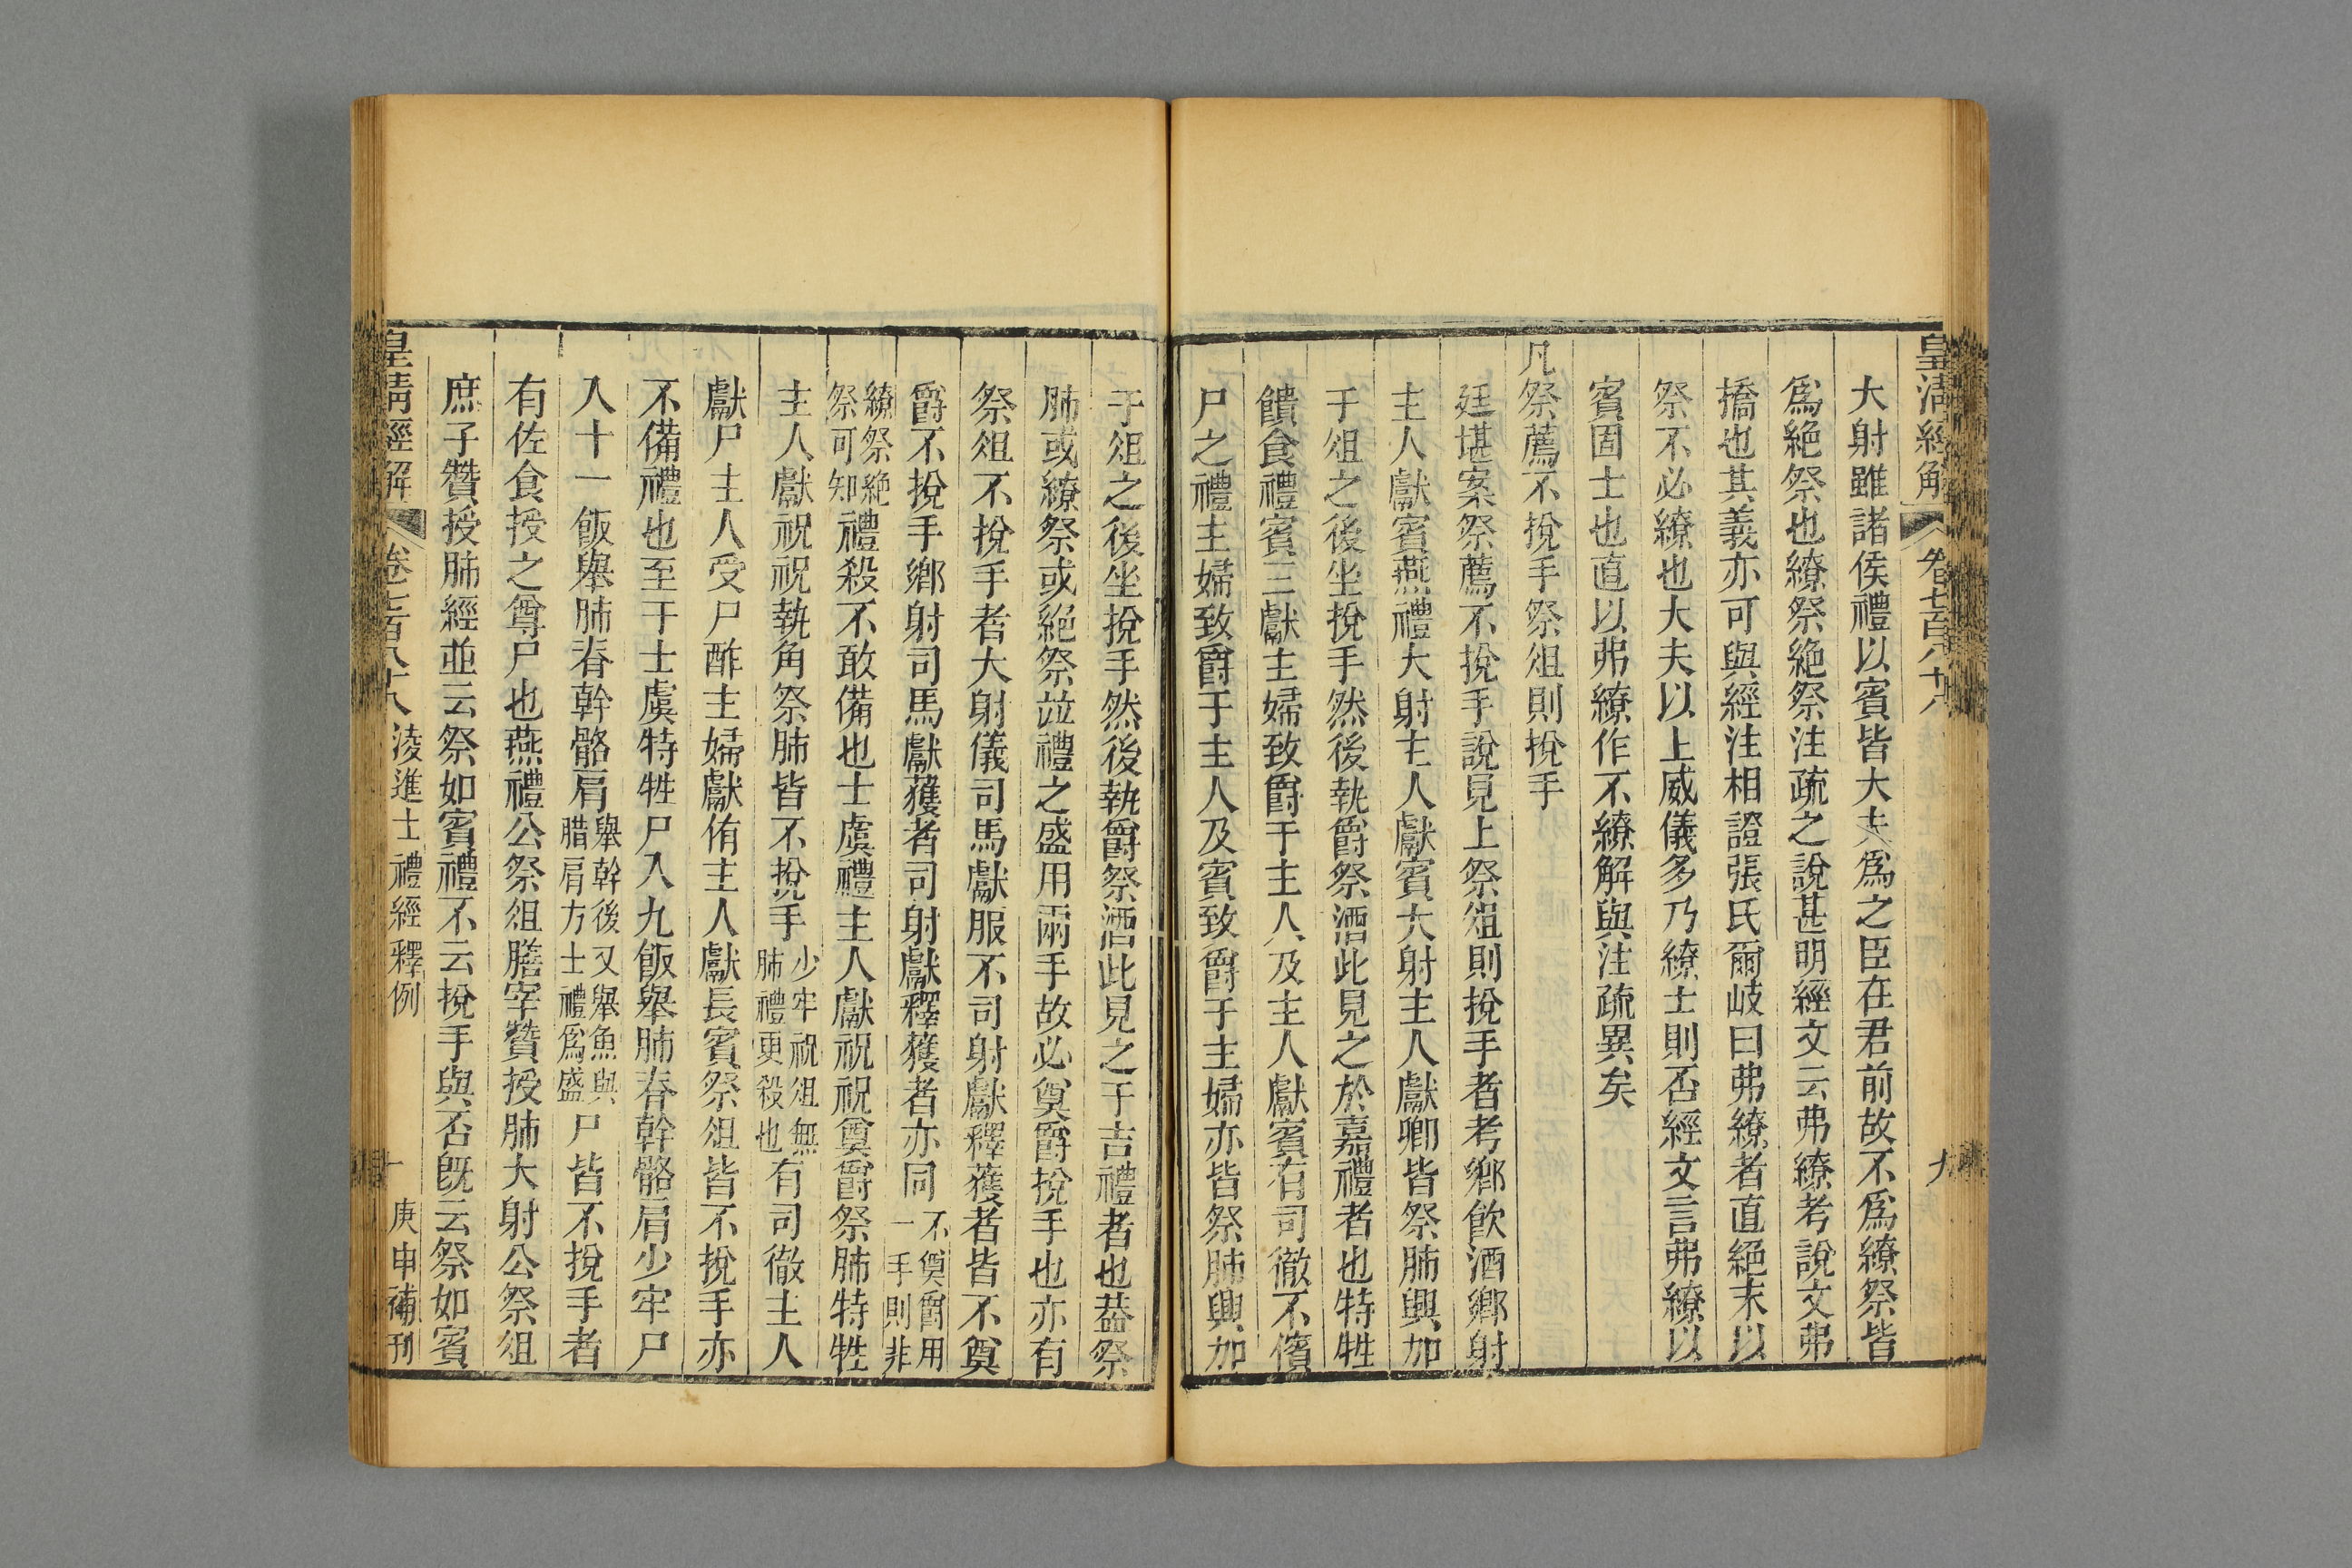 皇清經解
卷七百八十八
九
大射雖諸侯禮以賓皆大夫爲之臣在君前故不爲繚祭皆
爲絶祭也繚祭絶祭注疏之說甚明經文云弗繚考說文弗
撟也其義亦可與經注相證張氏爾岐曰弗繚者直絶末以
祭不必繚也大夫以上威儀多乃繚士則否經文言弗繚以
賓固士也直以弗繚作不繚解與注疏異矣
凡祭薦不挩手祭俎則挩手
廷堪案祭薦不挩手說見上祭俎則挩手者考鄉飲酒鄉射
主人獻賓燕禮大射主人獻賓大射主人獻卿皆祭肺興加
于俎之後坐挩手然後執爵祭酒此見之於嘉禮者也特牲
饋食禮賓三獻主婦致爵于主人及主人獻賓有司徹不儐
尸之禮主婦致爵于主人及賓致爵于主婦亦皆祭肺興加
于俎之後坐挩手然後執爵祭酒此見之于吉禮者也蓋祭
肺或繚祭或絶祭並禮之盛用兩手故必奠爵挩手也亦有
祭俎不挩手者大射儀司馬獻服不司射獻釋獲者皆不奠
爵不挩手鄉射司馬獻獲者司射獻釋獲者亦同不奠爵用一手則非
繚祭絶祭可知禮殺不敢備也士虞禮主人獻祝祝奠爵祭肺特牲
主人獻祝祝執角祭肺皆不挩手少牢祝俎無肺禮更殺也有司徹主人
獻尸主人受尸酢主婦獻侑主人獻長賓祭俎皆不挩手亦
不備禮也至于士虞特牲尸入九飯舉肺脊幹骼肩少牢尸
入十一飯舉肺脊幹骼肩舉幹後又舉魚與腊肩方士禮爲盛尸皆不挩手者
有佐食授之尊尸也燕禮公祭俎膳宰贊授肺大射公祭俎
庶子贊授肺經並云祭如賓禮不云挩手與否旣云祭如賓
皇清經解
卷七百八十八
淩進士禮經釋例
十
庚申補刊